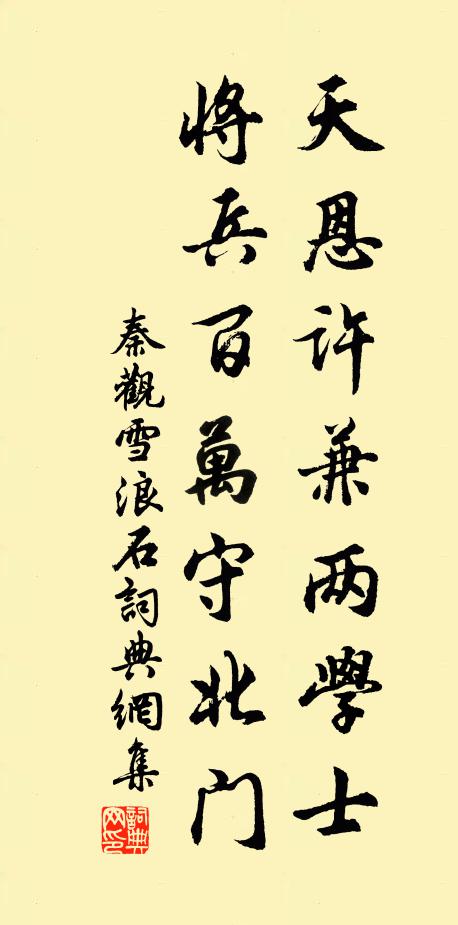 天恩许兼两學士
将兵百萬守北门
秦觀雪浪石詞典網集
詞典网印